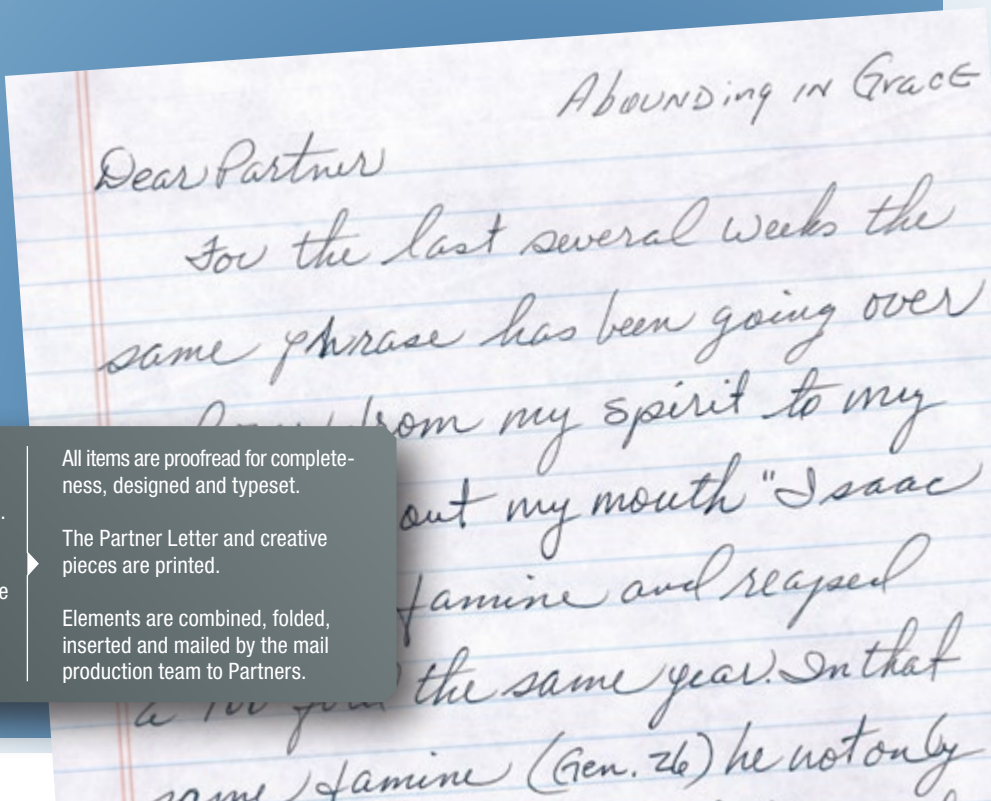 Abounding in Grace
Dear Partner
For the last several weeks the
same phrase has been going over
from my spirit to my
out my mouth "Isaac
famine and reaped
a 100 fold the same year. In that
same famine (Gen. 26) he not only
.
e
All items are proofread for complete-
ness, designed and typeset.
The Partner Letter and creative
pieces are printed.
Elements are combined, folded,
inserted and mailed by the mail
production team to Partners.